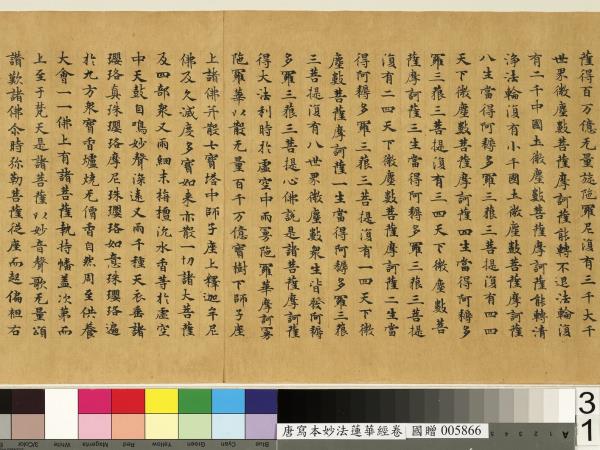 薩得百万億无量旋陁羅尼復有三千大千
世界微塵數菩薩摩訶薩能轉不退法輪復
有二千中國土微塵數菩薩摩訶薩能轉清
淨法輪復有小千國土微塵數菩薩摩訶薩
八生當得阿耨多羅三藐三菩提復有四四
天下微塵數菩薩摩訶薩四生當得阿耨多
羅三藐三菩提復有三四天下微塵數菩
薩摩訶薩三生當得阿耨多羅三藐三菩提
復有二四天下微塵數菩薩摩訶薩二生當
得阿耨多羅三藐三菩提復有一四天下微
塵數菩薩摩訶薩一生當得阿耨多羅三藐
三菩提復有八世界微塵數衆生皆發阿耨
多羅三藐三菩提心佛說是諸菩薩摩訶薩
得大法利時於虛空中雨曼陁羅華摩訶曼
陁羅華以散无量百千万億寶樹下師子座
上諸佛并散七寶塔中師子座上釋迦牟尼
佛及久滅度多寶如來亦散一切諸大菩薩
及四部衆又雨細末栴檀沉水香等於虛空
中天鼓自鳴妙聲深遠又雨千種天衣垂諸
瓔珞真珠瓔珞摩尼珠瓔珞如意珠瓔珞遍
於九方衆寶香爐燒无價香自然周至供養
大會一一佛上有諸菩薩執持幡蓋次第而
上至于梵天是諸菩薩以妙音聲歌无量頌
讃歎諸佛尒時弥勒菩薩從座而起偏袒右
唐寫本妙法蓮華經卷 國贈 005866
3/Color
White
Magenta
Red
Yellow
Green
Cyan
Blue
5 4 3 2 1 A
3
1